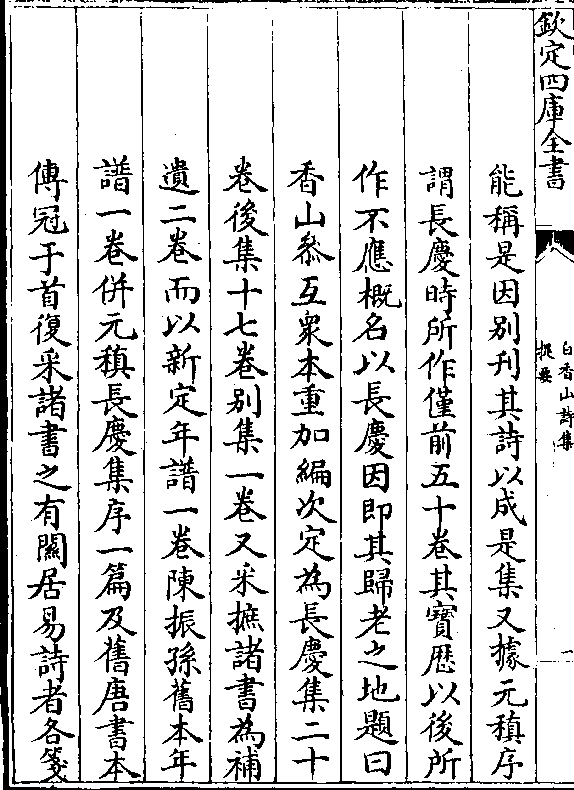 欽定四庫全書
白香山詩集
提要
一
能稱是因别刊其詩以成是集又據元稹序
謂長慶時所作僅前五十卷其寳厯以後所
作不應概名以長慶因即其歸老之地題曰
香山叅互衆本重加編次定為長慶集二十
卷後集十七卷别集一卷又采摭諸書為補
遺二卷而以新定年譜一卷陳振孫舊本年
譜一卷併元稹長慶集序一篇及舊唐書本
傳冠于首復采諸書之有闗居易詩者各箋